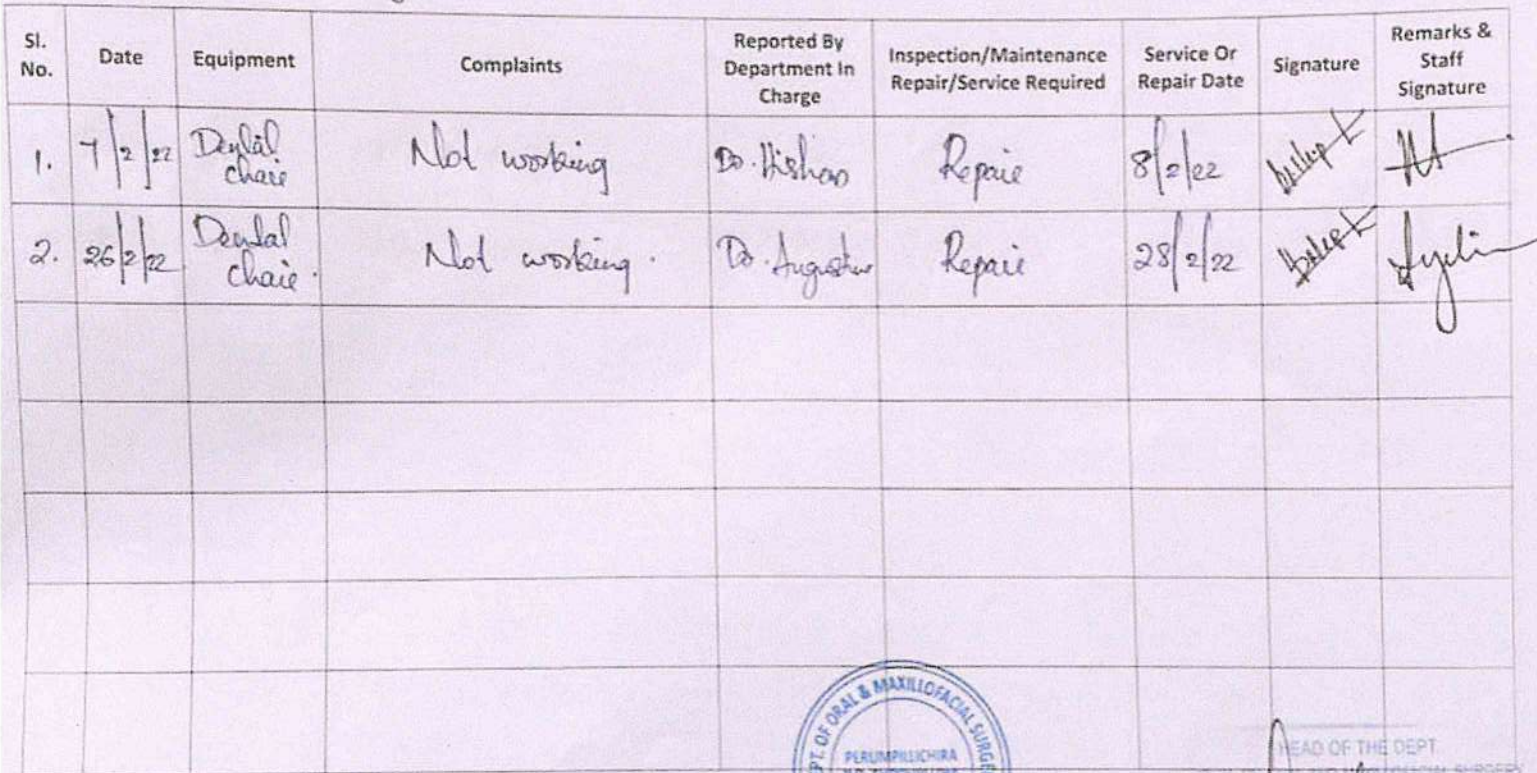 Sl. No. Date Equipment Complaints Reported By Department In Charge Inspection/Maintenance Repair/Service Required Service Or Repair Date Signature Remarks & Staff Signature
1. 7/2/22 Dental chair Not working Dr. Hishan Repair 8/2/22
2. 26/2/22 Dental chair. Not working. Dr. Augustine Repair 28/2/22
DEPT. OF ORAL & MAXILLOFACIAL SURGE
PERUMPILLICHIRA
HEAD OF THE DEPT.
SURGERY